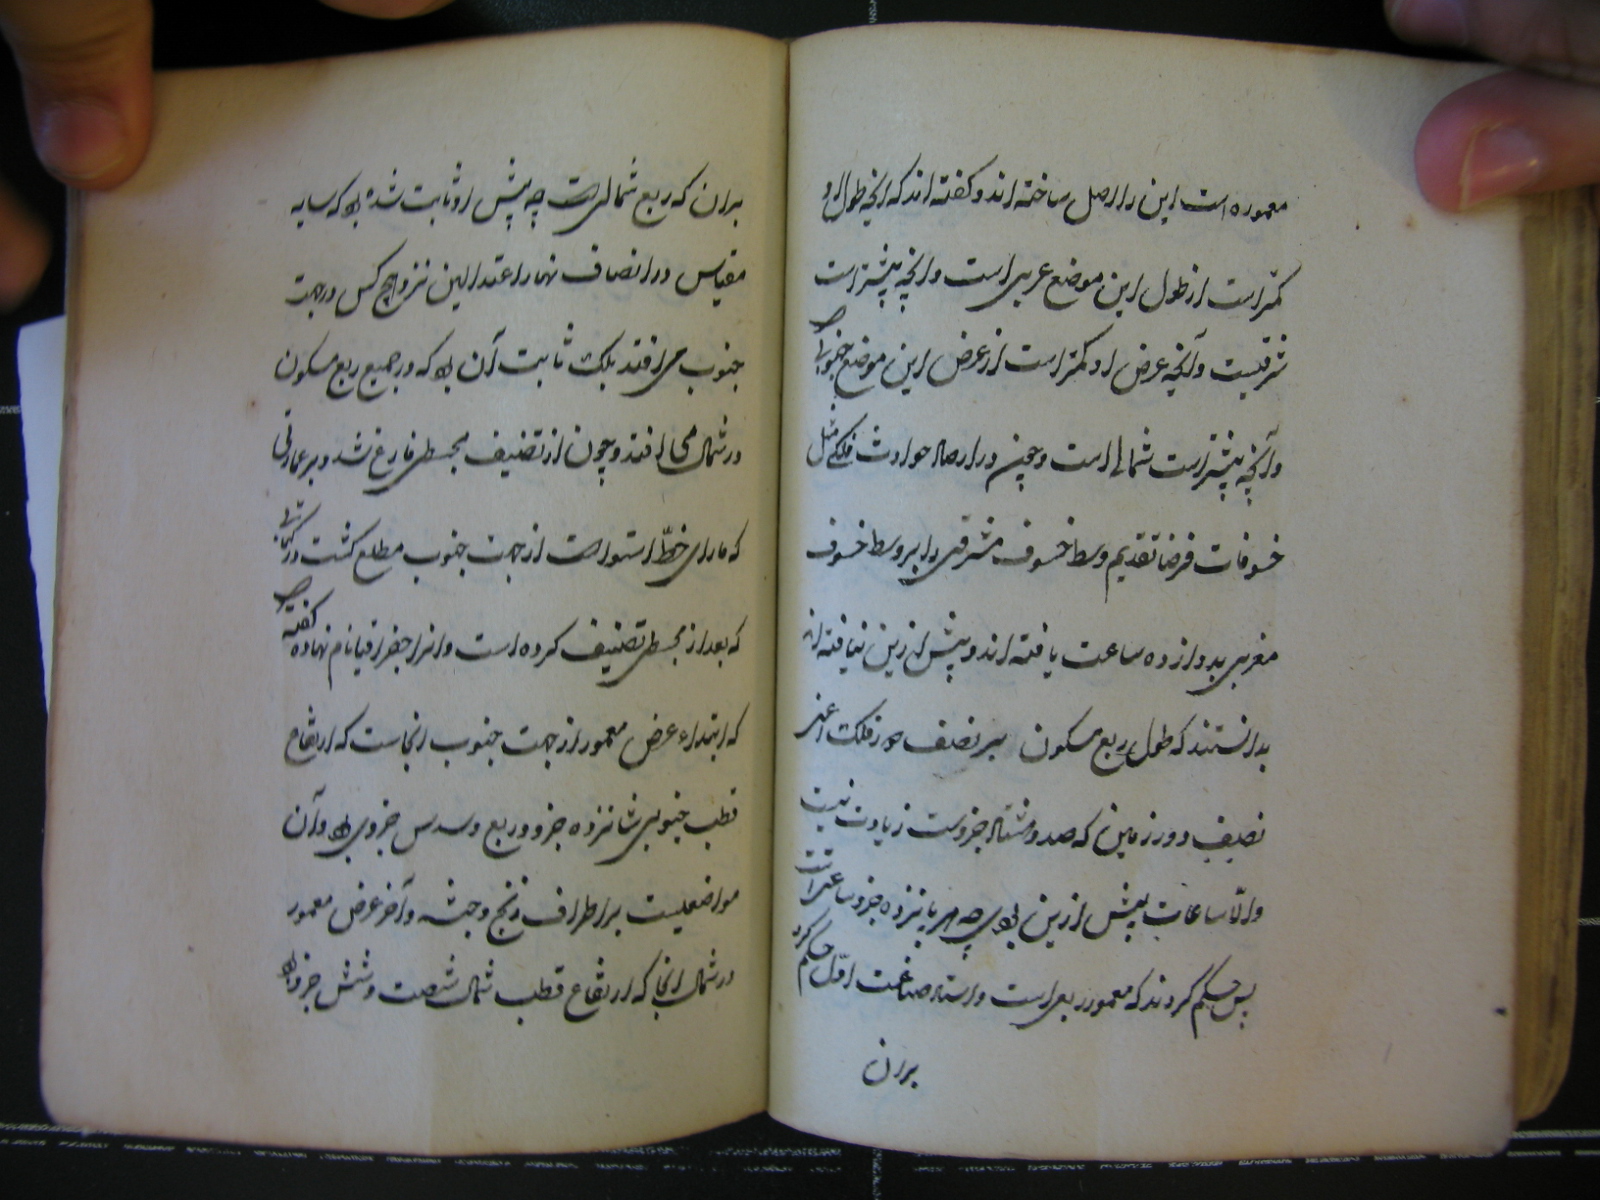 معموره است این را اصل ساخته اند و کفته اند که انچه طول او
کمتر است از طول این موضع غربی است وانچه بیشتر است
شرقیست وآنچه عرض او کمتر است از عرض این موضع جنوبی است
وآنچه بیشتر است شمالی است و چون در ارصاد حوادث فلکی مثل
خسوفات فرضا تقدیم وسط خسوف مشرقی را بر وسط خسوف
مغربی بدوازده ساعت یافته اند و بیش ازین نیافته اند
بدانستند که طول ربع مسکون بر نصف دور فلکست اعنی
نصف دور زمین که صد وهشتاد جزوست زیادت نیست
والا ساعات بیش ازین بودی چه هر پانزده جزو ساعتی است
پس حکم کردند که معمور ربعی است و استاد صناعت اول حکم کرد
بر ان
بر ان که ربع شمالی است چه پیش او ثابت شده بود که سایه
مقیاس در انصاف نهار اعتدالین نزد هیچ کس در جهت
جنوب می افتد بلک ثابت آن بود که در جمیع ربع مسکون
در شمال می افتد و چون از تصنیف مجسطی فارغ شد و بر عمارتی
که ماورای خط استوا است از جهت جنوب مطلع کشت در کتابی
که بعد از مجسطی تصنیف کرده است وانرا جغرافیا نام نهاده کفته است
که ابتداء عرض معمور از جهت جنوب انجاست که ارتفاع
قطب جنوبی شانزده جزو و ربع وسدس جزوی بود وآن
مواضعیست بر اطراف زنج وحبشه وآخر عرض معمور
در شمال انجا که ارتفاع قطب شمال شصت وشش جزو بود